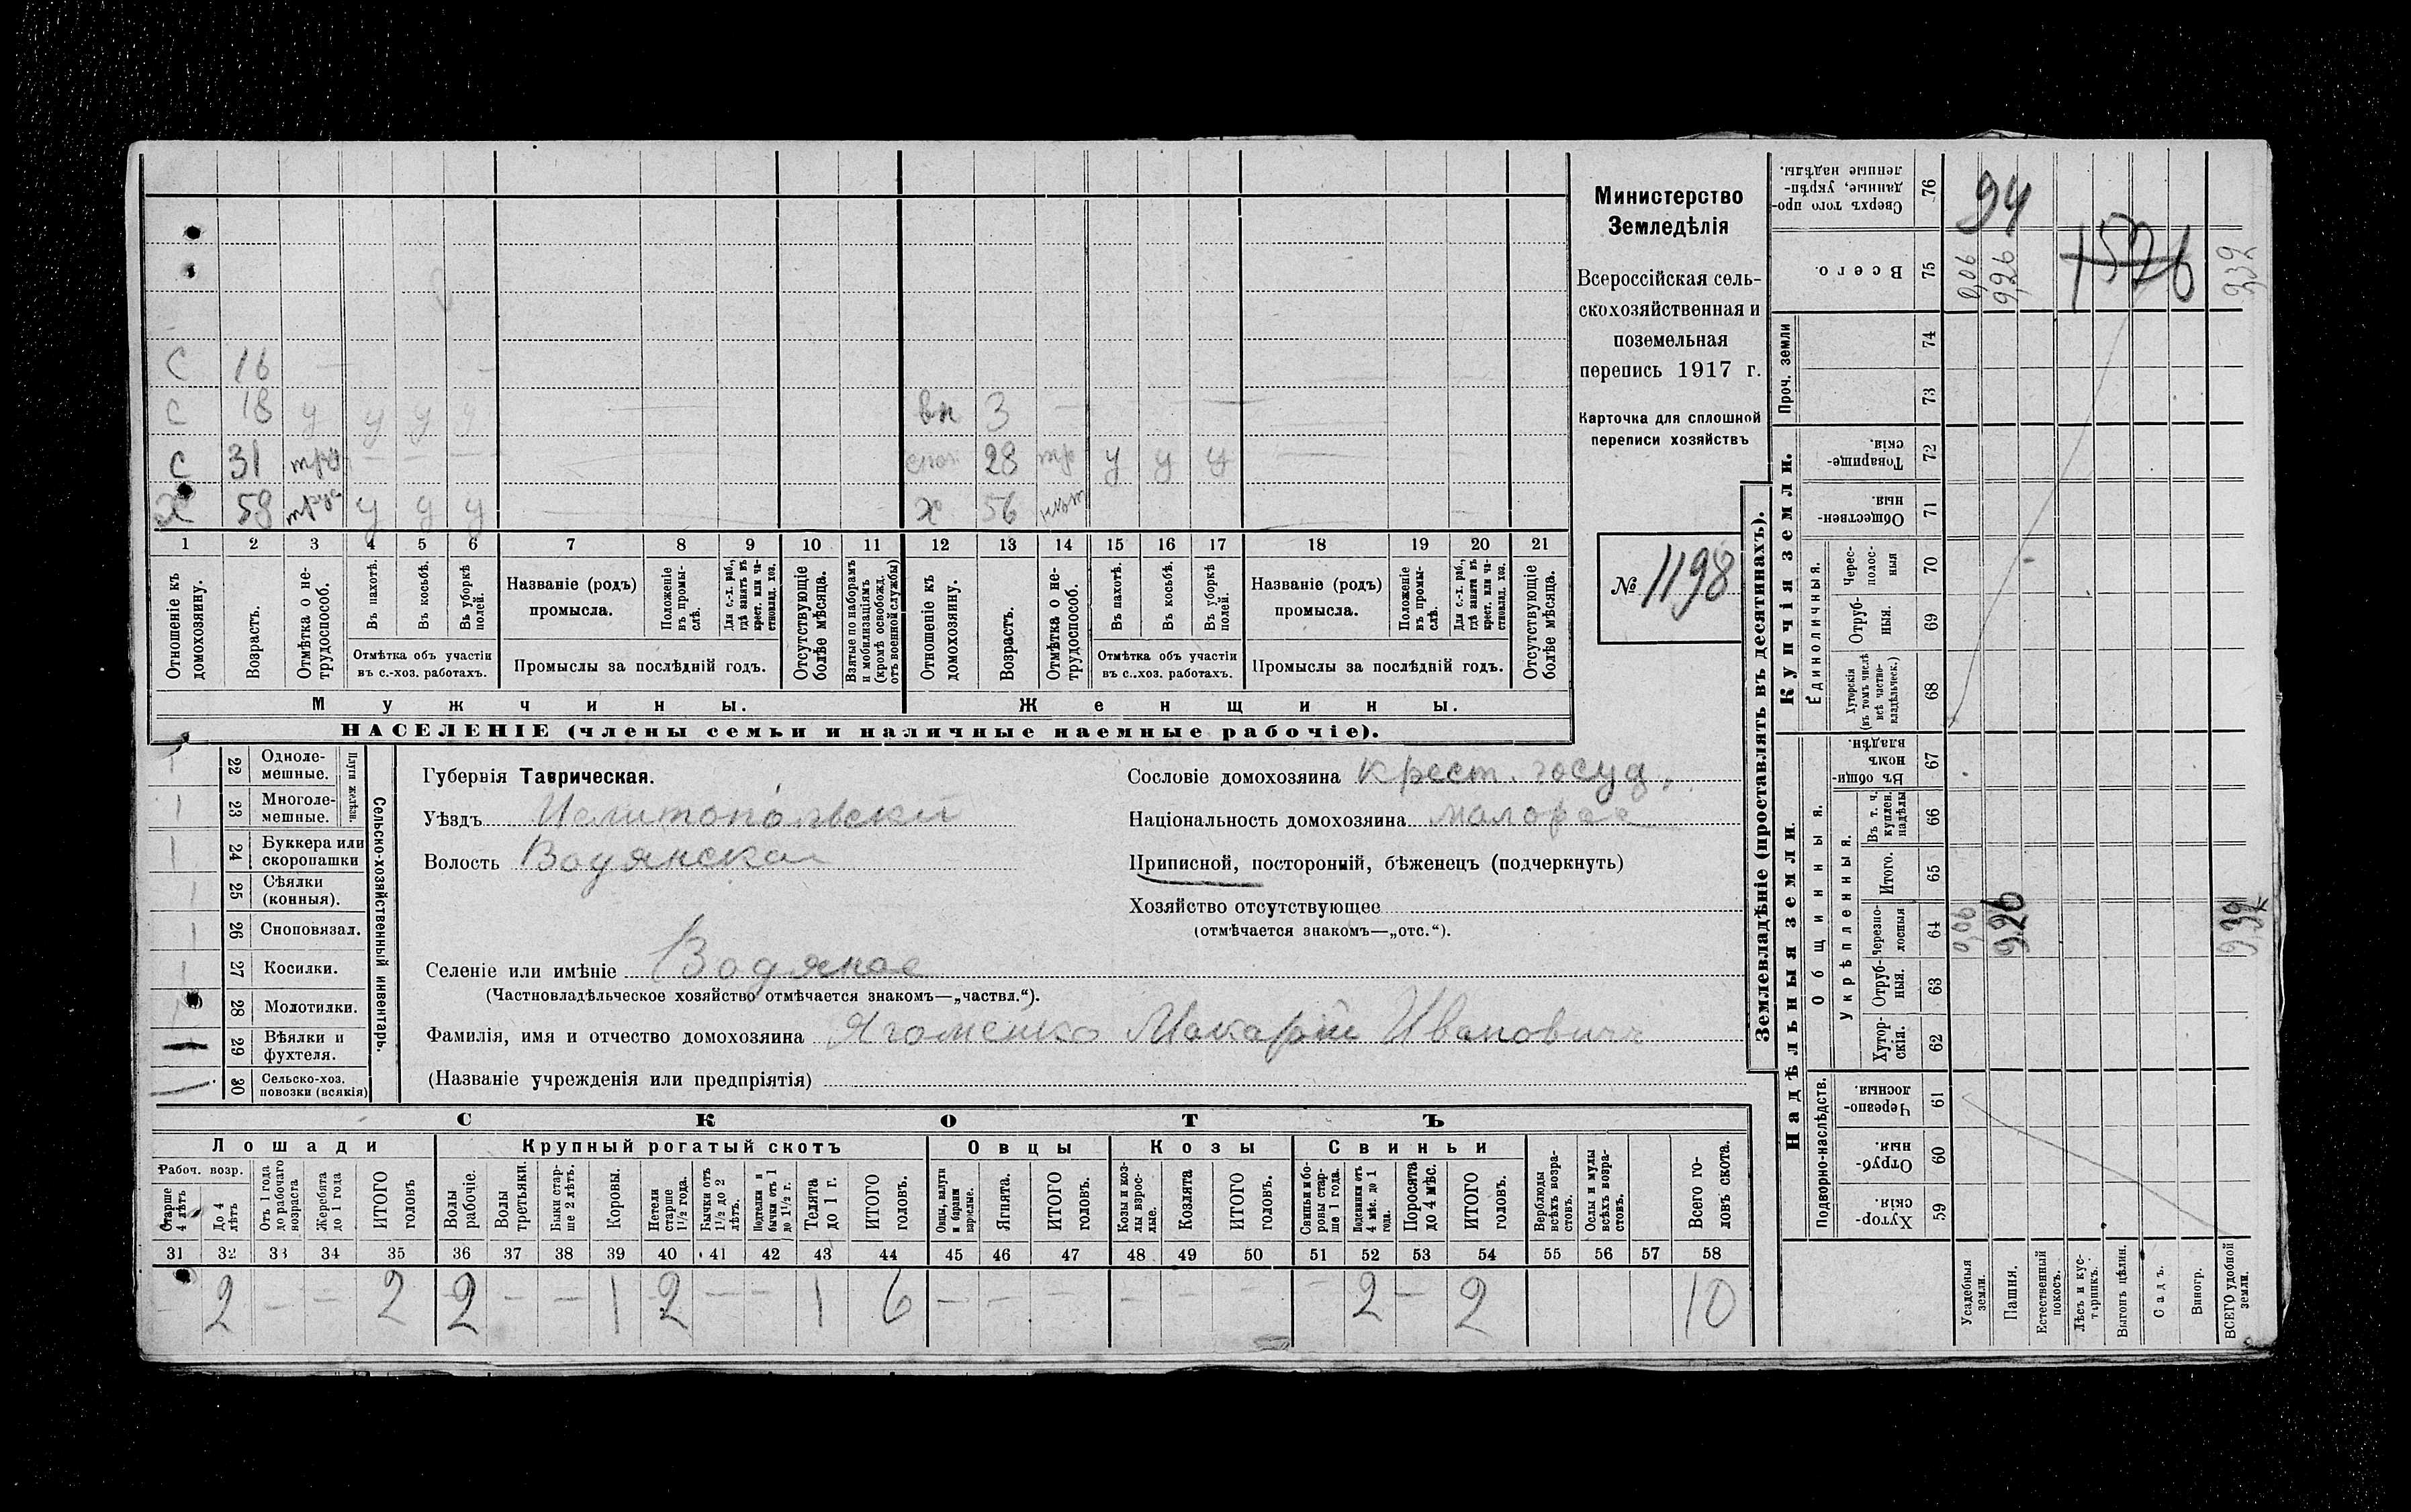 Министерство
Земледѣлія
Всероссійская сель-
скохозяйственная и
поземельная
перепись 1917 г.
Карточка для сплошной
переписи хозяйствъ
№ 1198
С 16
С 18 у у у у
вн 3
С 31
28 тр у у у
Х 58 у у у
х 56
1 2 3 4 5 6 7 8 9 10 11 12 13 14 15 16 17 18 19 20 21
Отношеніе къ домохозяину.
Возрастъ.
Отмѣтка о не-трудоспособ.
Въ пахотѣ.
Въ косьбѣ.
Въ уборкѣ полей.
Отмѣтка объ участіи
въ с.-хоз. работахъ.
Названіе (родъ)
промысла.
Положеніе въ промы-слѣ.
Для с.-х. раб., гдѣ занятъ въ крест. или ча-стновлад. хоз.
Промыслы за послѣдній годъ.
Отсутствующіе болѣе мѣсяца.
Взятые по наборамъ и мобилизаціямъ (кромѣ освобожд. отъ военной службы)
Отношеніе къ домохозяину.
Возрастъ.
Отмѣтка о не-трудоспособ.
Въ пахотѣ.
Въ косьбѣ.
Въ уборкѣ полей.
Отмѣтка объ участіи
въ с..хоз. работахъ.
Названіе (родъ)
промысла.
Положеніе въ промы-слѣ.
Для с.-х. раб., гдѣ занята въ крест. или ча-стновлад. хоз.
Промыслы за послѣдній годъ.
Отсутствующіе болѣе мѣсяца.
Мужчины.
Женщины.
НАСЕЛЕНІЕ (члены семьи и наличные наемные рабочіе).
Сельско-хозяйственный инвентарь.
Плуги желѣзн.
22 Одноле-мешные.
23 Многоле-мешные.
24 Буккера или скоропашки
25 Сѣялки (конныя).
26 Сноповязал.
27 Косилки.
28 Молотилки.
29 Вѣялки и фухтеля.
30 Сельско-хоз. повозки (всякія)
Губернія Таврическая.
Уѣздъ Мелитопольскій
Волость Водянская
Сословіе домохозяина крест. госуд.
Національность домохозяина малорос
Приписной, посторонній, бѣженецъ (подчеркнуть)
Хозяйство отсутствующее
(отмѣчается знакомъ—„отс.“).
Селеніе или имѣніе Водяное
(Частновладѣльческое хозяйство отмѣчается знакомъ—„частвл.“).
Фамилія, имя и отчество домохозяина Ягоменко Макарій Ивановичъ
(Названіе учрежденія или предпріятія)
СКОТЪ
Лошади
Крупный рогатый скотъ
Овцы
Козы
Свиньи
Рабоч. возр.
Старше 4 лѣтъ
До 4 лѣтъ
Отъ 1 года до рабочаго возраста
Жеребята до 1 года
ИТОГО головъ
Волы рабочіе.
Волы третьяки.
Быки стар-ше 2 лѣтъ.
Коровы.
Нетели старше 1½ года.
Бычки отъ 1½ до 2 лѣтъ.
Подтелки и бычки отъ 1 до 1½ г.
Телята до 1 г.
ИТОГО головъ.
Овцы, валухи и бараны взрослые.
Ягнята.
ИТОГО головъ.
Козы и коз-лы взрос-лые.
Козлята
ИТОГО головъ.
Свиньи и бо-ровы стар-ше 1 года.
Подсвинки отъ 4 мѣс. до 1 года.
Поросята до 4 мѣс.
ИТОГО головъ.
Верблюды всѣхъ возра-стовъ.
Ослы и мулы всѣхъ возра-стовъ.
Всего го-ловъ скота.
31 32 33 34 35 36 37 38 39 40 41 42 43 44 45 46 47 48 49 50 51 52 53 54 55 56 57 58
2 — — 2 2 — — 1 2 — — 1 6 — — — — — — — 2 — 2 10
Землевладѣніе (проставлять въ десятинахъ).
Надѣльныя земли.
Купчія земли.
Проч. земли
Подворно-наслѣдств.
Общинныя.
Укрѣпленныя.
Единоличныя.
Хутор-скія. 59
Отруб-ныя. 60
Черезпо-лосныя. 61
Хутор-скія. 62
Отруб-ныя. 63
Черезпо-лосныя 64
Итого. 65
Въ т. ч. куплен. надѣлы 66
Въ общи-номъ владѣн. 67
Хуторскія (въ томъ числѣ всѣ частно-владѣльческ.) 68
Отруб-ныя. 69
Черес-полос-ныя 70
Обществен-ныя. 71
Товарище-скія. 72
73
74
Всего. 75
Сверхъ того про-данные, укрѣп-ленные надѣлы. 76
Усадебныя земли.
Пашня.
Естественный покосъ.
Лѣсъ и кус-тарникъ.
Выгонъ цѣлин.
Садъ.
Виногр.
ВСЕГО удобной земли.
0,06
9,26
9,32
0,06
9,26
9,32
94
1526